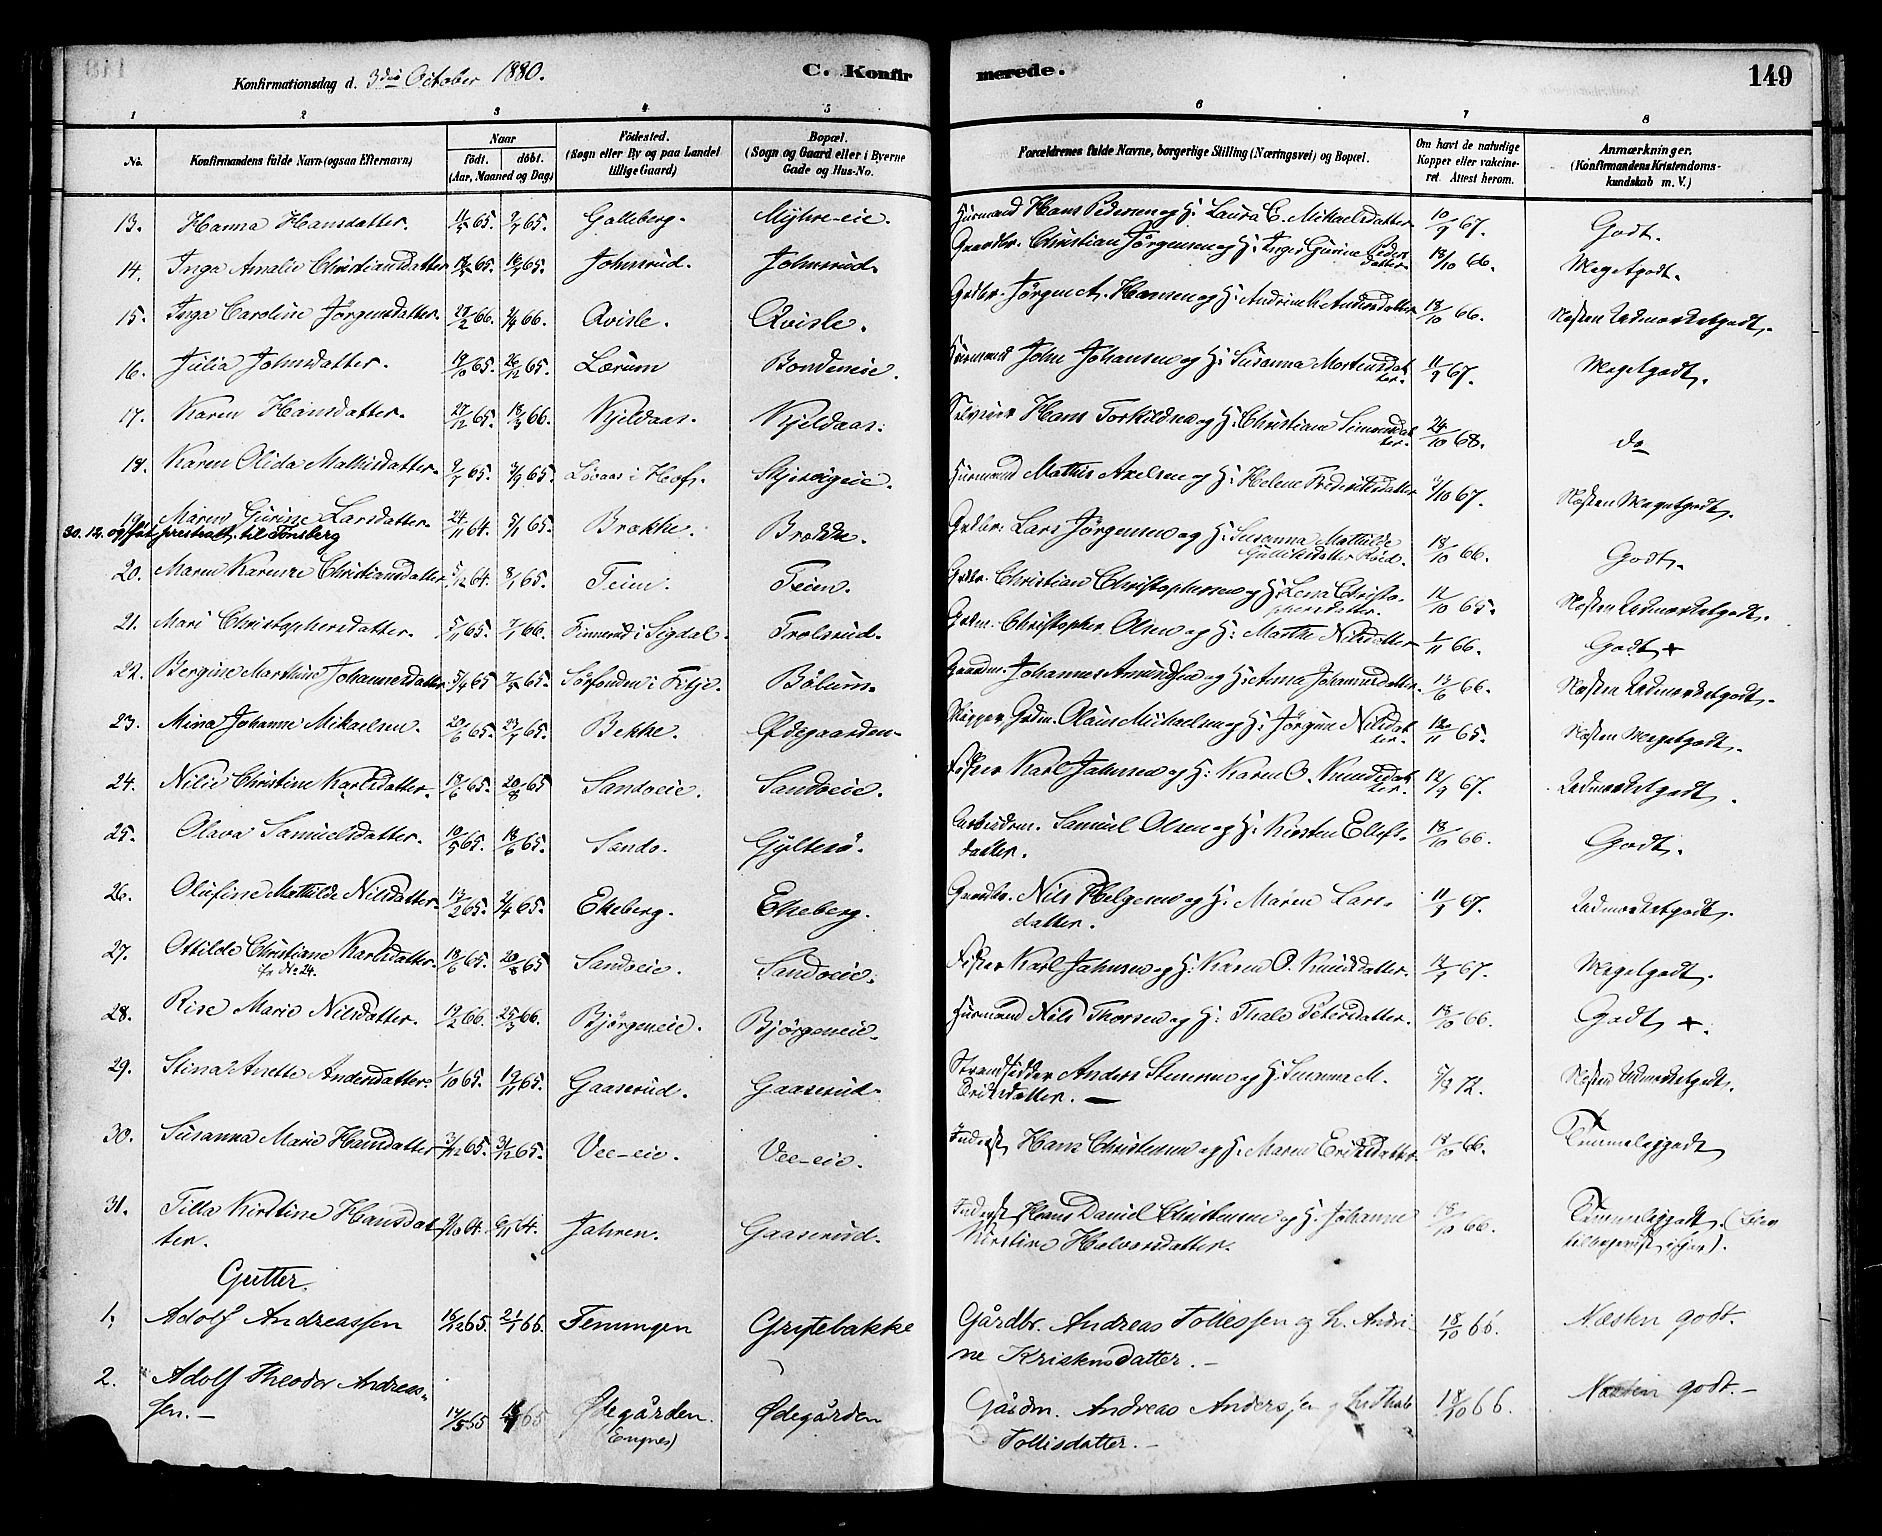 Konfirmationsdag d. 3die October 1880.
C. Konfirmerede.
149
1 2 3 4 5 6 7 8
No. Konfirmandens fulde Navn (ogsaa Efternavn) Naar født. døbt. (Aar, Maaned og Dag) Fødested. (Sogn eller By og paa Landet tillige Gaard) Bopæl. (Sogn og Gaard eller i Byerne Gade og Hus-No. Forældrenes fulde Navne, borgerlige Stilling (Næringsvei) og Bopæl. Om havt de naturlige Kopper eller vakcineret. Attest herom. Anmærkninger. (Konfirmandens Kristendomskundskab m. V.)
13. Hanna Hansdatter. 11/5 65. 9/7 65. Galleberg. Myhre-eie. Husmand Hans Pedersen og H. Laura C. Mikaelsdatter 10/9 67. Godt.
14. Inga Amalie Christiansdatter 65. 65. Johnsrud. Johnsrud. Gaardbr. Christian Jørgensen og H. Inger Gurine Peders datter. 18/10 66. Megetgodt.
15. Inga Caroline Jørgensdatter. 66. 66. Qvisle. Qvisle. Grdbr. Jørgen A. Hansen og H. Andrine K. Andersdatter 18/10 66. Næsten Udmærketgodt.
16. Julia Johnsdatter. 65. 26/12 65. Lærum Bondeneie. Husmand John Johansen og H. Susanna Mortensdatter. 11/9 67. Megetgodt.
17. Karen Hansdatter. 27/12 65. 18/3 66. Kjeldaas. Kjeldaas. Hans Torkildsen og H. Christiane Simensdatter. 24/10 68. do
18. Karen Olida Mathisdatter. 9/7 65. 3/9 65. Løvaas i Hof. Husmand Mathis Axelsen og H. Helene Frederiksdatter 67. Næsten Megetgodt.
19. Maren Gurine Larsdatter. 24/11 64. 5/1 65. Brække. Brække. Grdbr. Lars Jørgensen og H. Susanna Mathilde Gulliksdatter 18/10 66. Godt.
30.12. til Tønsberg
20. Maren Karine Christiansdatter 5/12 64. 8/1 65. Teien. Teien. Grdbr. Christian Christophersen og H. Lena Christophersdatter. 12/10 65. Næsten Udmærketgodt.
21. Mari Christophersdatter. 5/11 65. 7/1 66. i Sigdal. Trolsrud. Grdm. Christopher Olsen og H. Marthe Nilsdatter 1/11 66. Godt +
22. Bergine Marthine Johannesdatter. 5/4 65 7/5 65. i Eftje. Bølum. Gaardm. Johannes Amundsen og H. Anna Johannesdatter. 66. Næsten Udmærketgodt.
23. Mina Johanne Mikaelsen. 20/6 65. 23/7 65. Bekke. Ødegaarden. Skipper, Grdm. Olaus Michaelsen og H. Jørgine Nilsdatter. 12/11 65. Næsten Megetgodt.
24. Nilie Christine Karlsdatter. 18/6 65. 20/8 65 Sandoeie. Sandoeie. Fisker Karl Jahnsen og H. Karen O. Knudsdatter. 12/9 67. Udmærketgodt.
25. Olava Samuelsdatter. 19/5 65. 18/6 65. Sando. Gyltesø. Arbeidsm. Samuel Olsen og H. Kirsten Ellefsdatter. 18/10 66. Godt.
26. Olufine Mathilde Nilsdatter. 13/2 65. 2/4 65. Ekeberg. Ekeberg. Gaardbr. Nils Helgesen og H. Maren Larsdatter. 11/9 67. Udmærketgodt.
27. Ottilde Christiane Karlsdatter. 18/6 65. 20/8 65 Sandoeie. Sandoeie. Fisker Karl Jahnsen og H. Karen O. Knudsdatter. 12/9 67. Megetgodt.
fr No 24.
28. Rise Marie Nilsdatter. 19/2 66. 25/3 66. Bjørgeneie. Bjørgeneie. Husmand Nils Thorsen og H. Thale Petersdatter. 18/10 66. Godt +.
29. Stina Anette Andersdatter. 1/10 65. 19/11 65. Gaaserud. Gaaserud. Strandsidder Anders Stenersen og H. Susanna M. Eriksdatter. — 72. Næsten Udmærketgodt.
30. Susanna Marie Hansdatter 3/12 65. 31/12 65. Vee-eie. Vee-eie. Inderst Hans Christensen og H. Maren Eriksdatter. 18/10 66. Temmeliggodt
31. Tilla Kirstine Hansdatter. 64. 64. Jahren. Gaaserud. Inderst Hans Daniel Christensen og H. Johanne Kirstine Halvorsdatter. 18/10 66. Temmeliggodt.
Gutter.
1. Adolf Andreassen 16/12 65. 21/1 66. Femingen Griftebakke Gårdbr. Andreas Tollefsen og h. Andrine Kristensdatter. — 18/10 66. Næsten godt.
2. Adolf Theodor Andreassen. — 14/5 65 65 Ødegården. (Engnes) Ødegården Gårdm. Andreas Anderssen Tollisdatter. — 18/10 66. Næsten godt. —